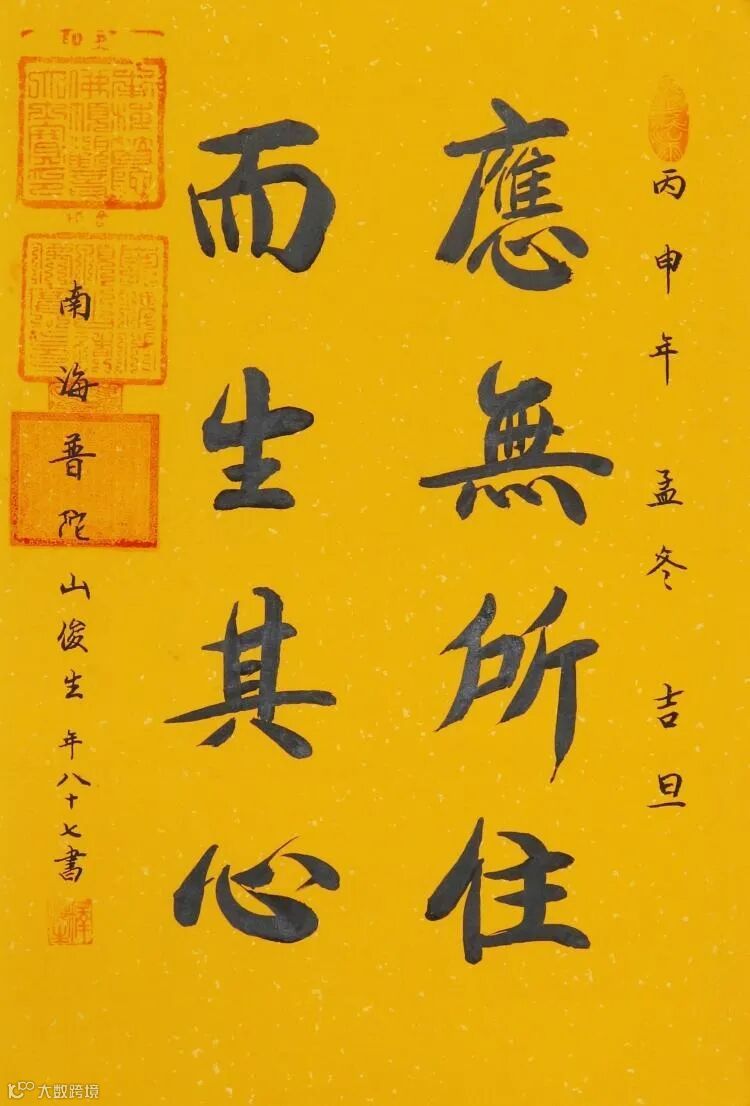 丙申年 孟冬 吉旦
應無所住
而生其心
南海普陀山俊生 年八十七書
大数跨境